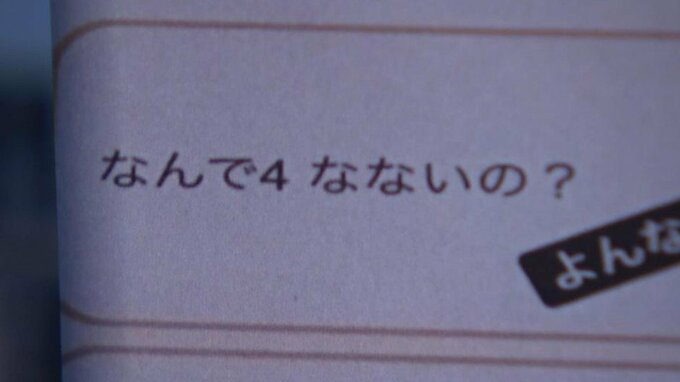 なんで4 なないの？
よんな